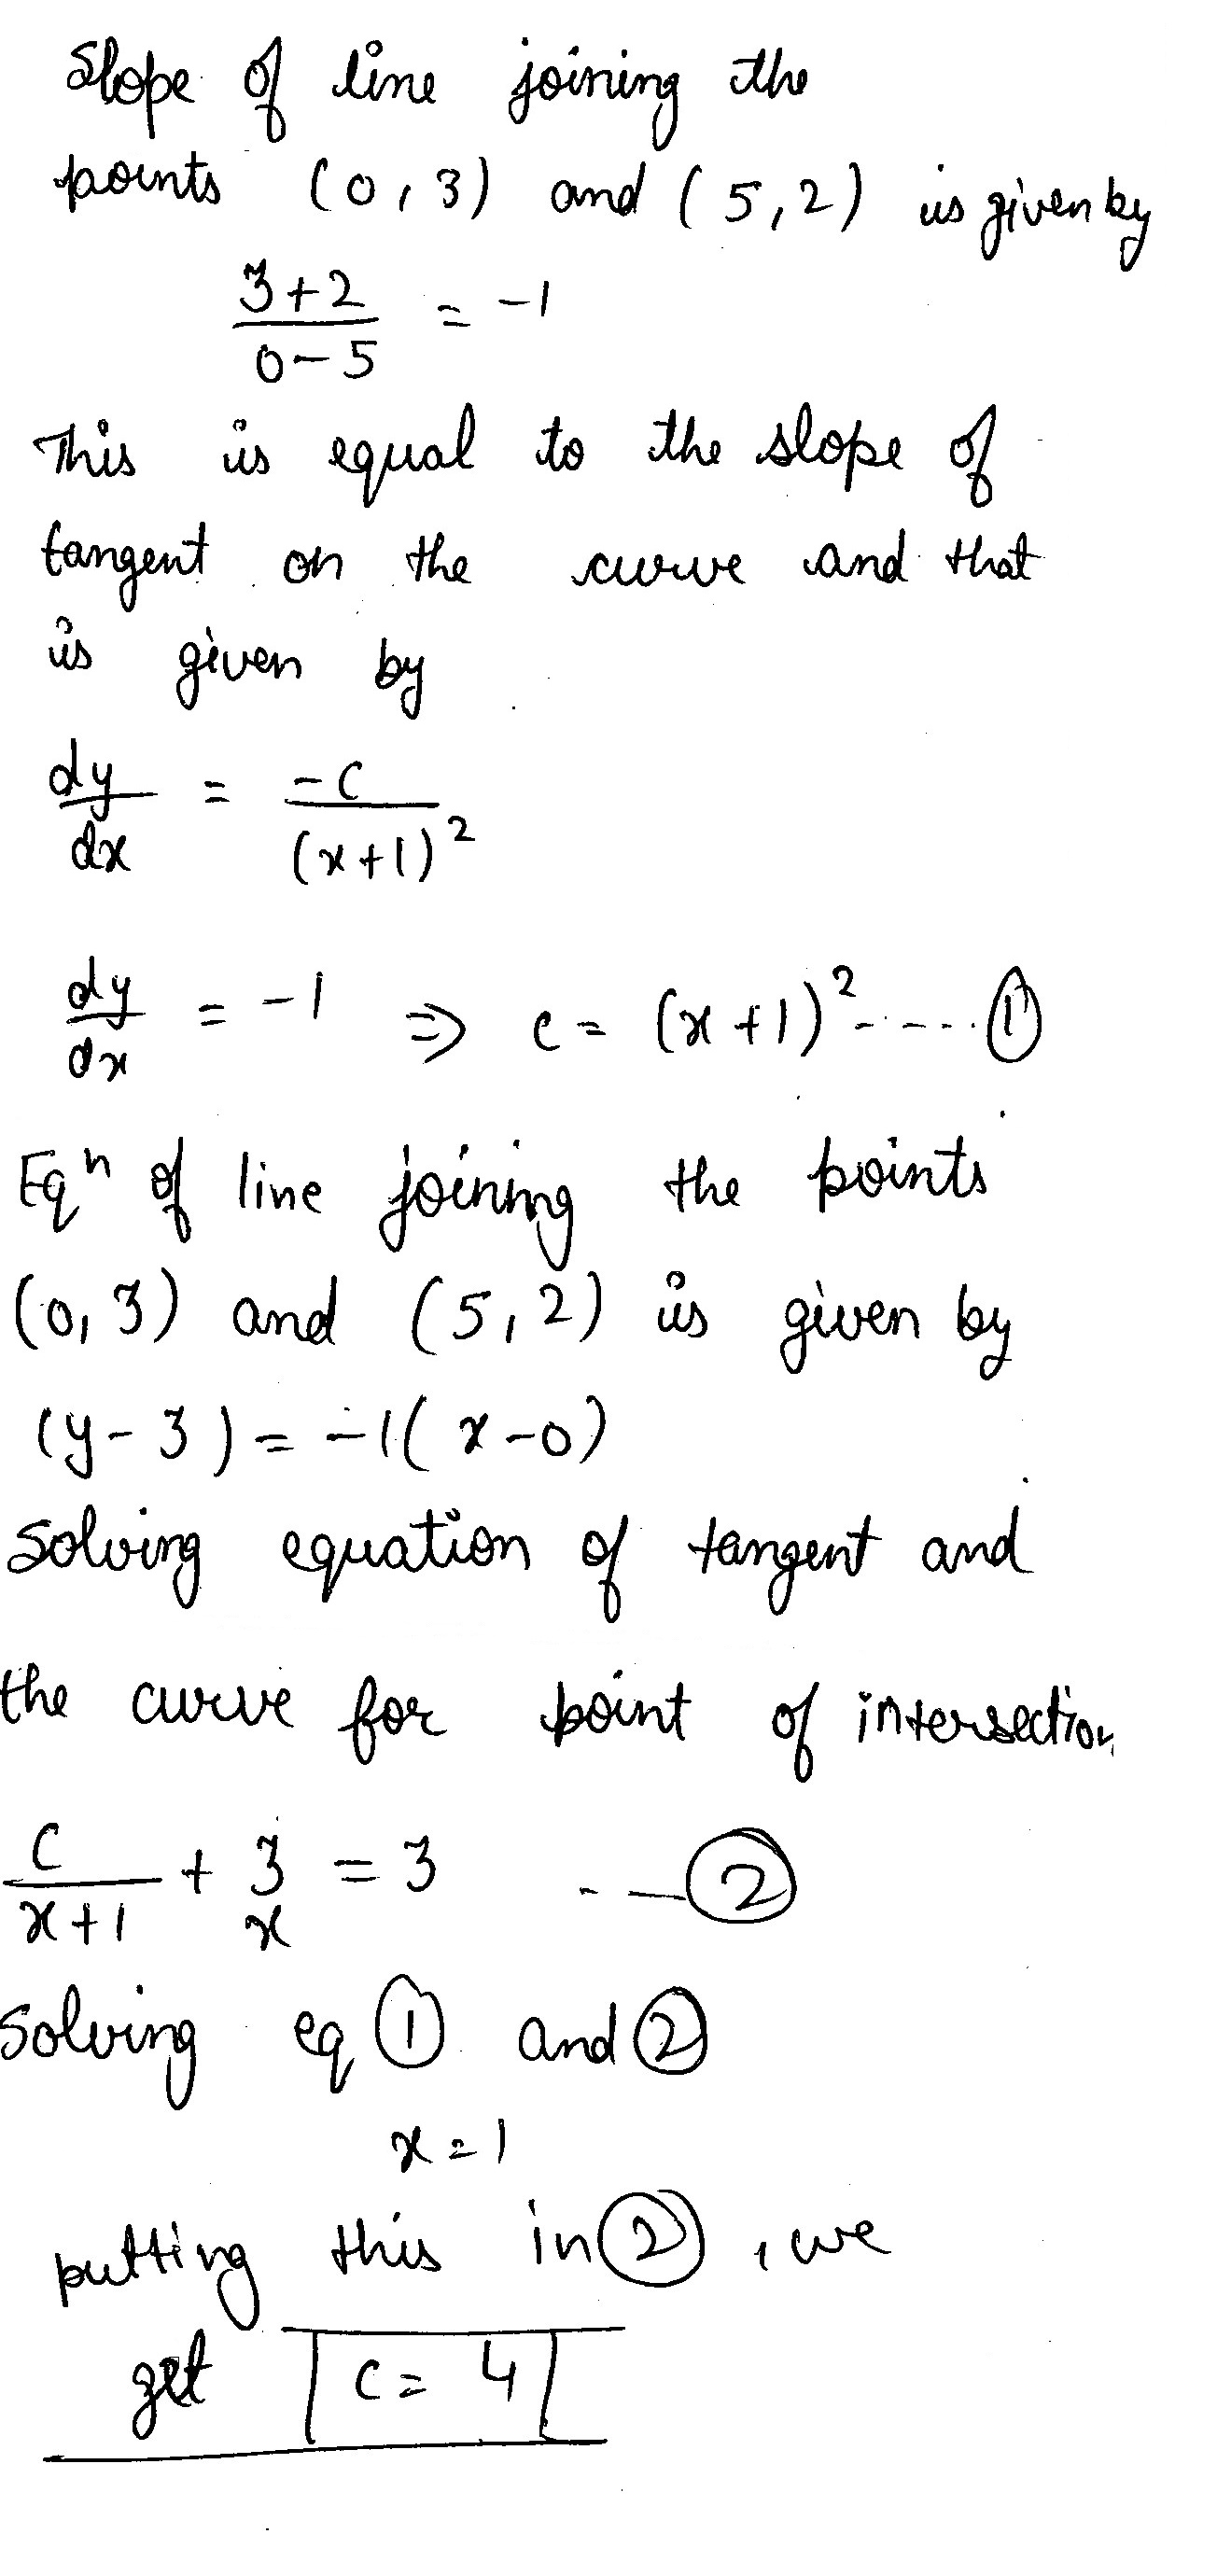 Slope of line joining the
points (0, 3) and (5, 2) is given by
3+2
/ 0-5 = -1
This is equal to the slope of
tangent on the curve and that
is given by
dy/dx = -c/(x+1)²
dy/dx = -1 ⇒ c = (x+1)² ----- ①
Eqⁿ of line joining the points
(0, 3) and (5, 2) is given by
(y-3) = -1(x-0)
Solving equation of tangent and
the curve for point of intersection
c/(x+1) + 3 = 3 --- ②
x
Solving eq ① and ②
x = 1
putting this in ②, we
get c = 4